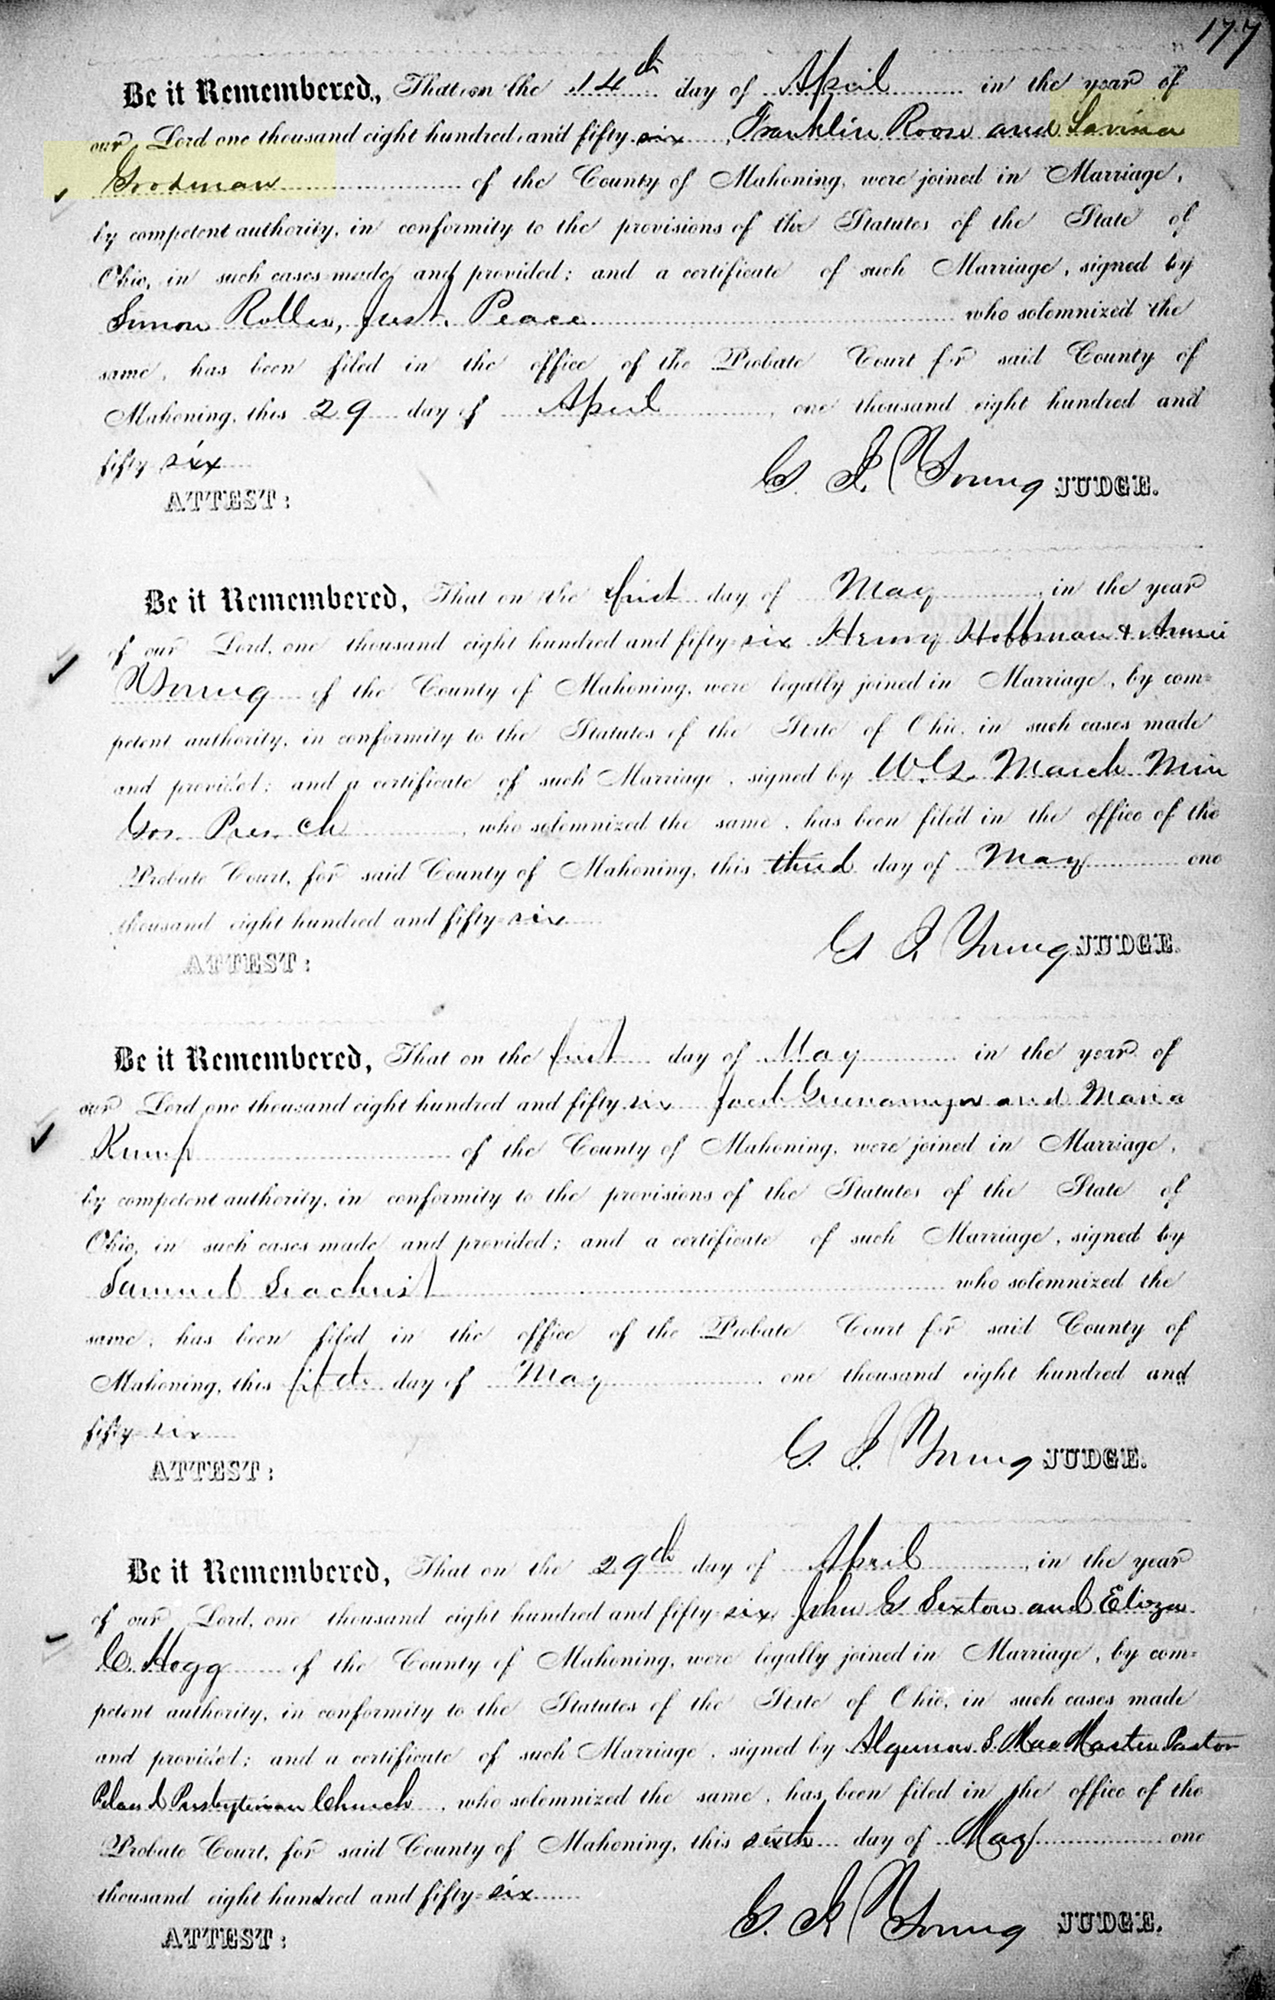 177
Be it Remembered, That on the 14th day of April in the year of
our Lord one thousand eight hundred and fifty six, Franklin Roose and Lavina
Goodman of the County of Mahoning, were joined in Marriage,
by competent authority, in conformity to the provisions of the Statutes of the State of
Ohio, in such cases made and provided; and a certificate of such Marriage, signed by
Simon Roller, Just. Peace who solemnized the
same, has been filed in the office of the Probate Court for said County of
Mahoning, this 29 day of April, one thousand eight hundred and
fifty six
G. F. Young JUDGE.
ATTEST:
Be it Remembered, That on the first day of May, in the year
of our Lord, one thousand eight hundred and fifty-six Henry Hoffman & Annie
Young of the County of Mahoning, were legally joined in Marriage, by com=
petent authority, in conformity to the Statutes of the State of Ohio, in such cases made
and provided; and a certificate of such Marriage, signed by W. G. March Min
Gos. Pres. Ch, who solemnized the same, has been filed in the office of the
Probate Court, for said County of Mahoning, this third day of May one
thousand eight hundred and fifty-six
G F Young JUDGE.
ATTEST:
Be it Remembered, That on the first day of May in the year of
our Lord one thousand eight hundred and fifty six Jacob and Maria
of the County of Mahoning, were joined in Marriage,
by competent authority, in conformity to the provisions of the Statutes of the State of
Ohio, in such cases made and provided; and a certificate of such Marriage, signed by
Samuel Seachrist who solemnized the
same, has been filed in the office of the Probate Court for said County of
Mahoning, this day of May one thousand eight hundred and
fifty six
G. F. Young JUDGE.
ATTEST:
Be it Remembered, That on the 29th day of April, in the year
of our Lord, one thousand eight hundred and fifty-six John G Sexton and Eliza
C. Hogg of the County of Mahoning, were legally joined in Marriage, by com=
petent authority, in conformity to the Statutes of the State of Ohio, in such cases made
and provided; and a certificate of such Marriage, signed by S. Mac Master Pastor
Poland Presbyterian Church, who solemnized the same, has been filed in the office of the
Probate Court, for said County of Mahoning, this sixth day of May one
thousand eight hundred and fifty-six
G. F. Young JUDGE.
ATTEST: